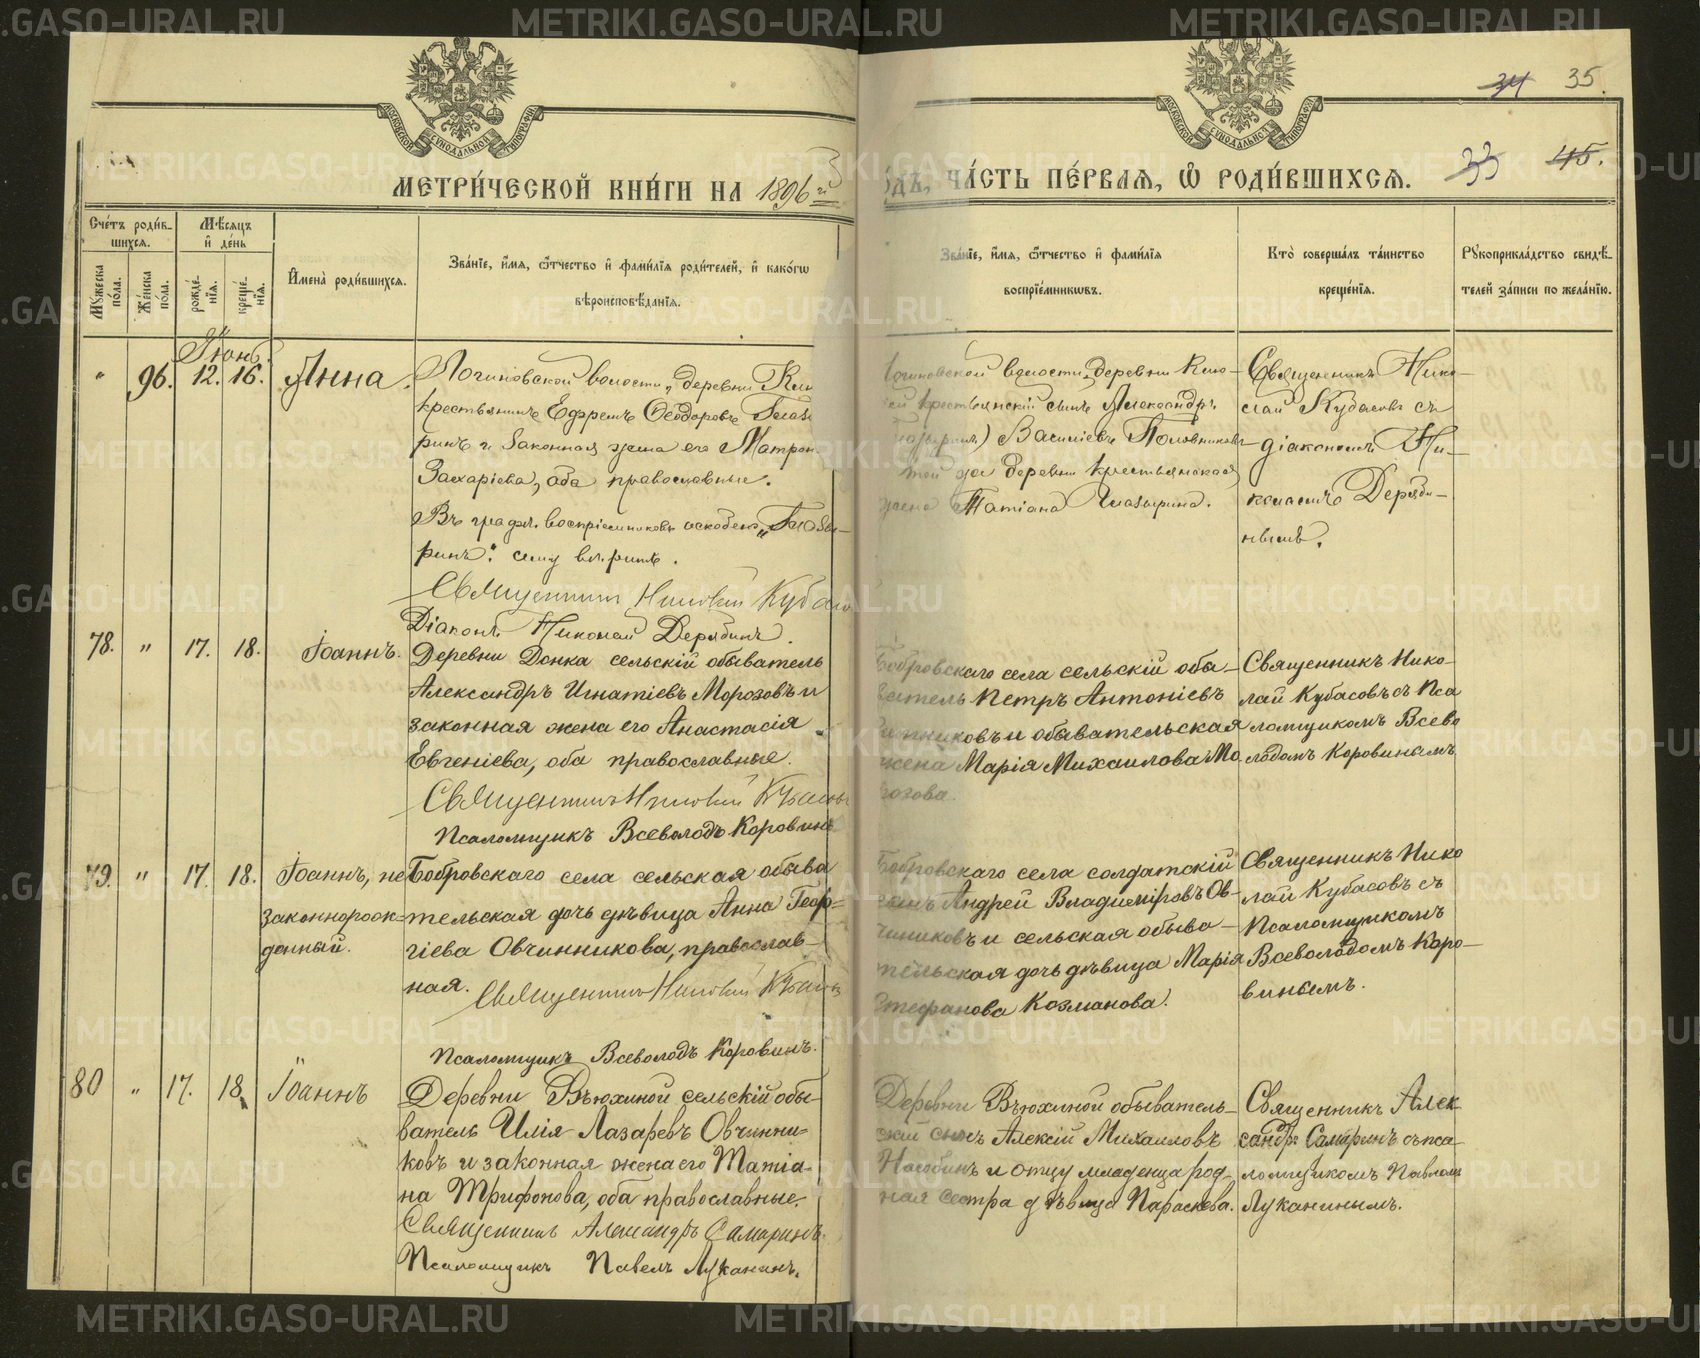 34 35.
33 45.
МЕТРИ́ЧЕСКОЙ КНИ́ГИ НА 1896 г.
ОДЪ, ЧА́СТЬ ПЕ́РВАЯ, Ѽ РОДИ́ВШИХСЯ.
МОСКОВСКОЙ СѴНОДАЛЬНОЙ ТИПОГРАФІИ
МОСКОВСКОЙ СѴНОДАЛЬНОЙ ТИПОГРАФІИ
Сче́тъ роди́в-
шихся.
Мꙋжеска по́ла.
Же́нска по́ла.
Мѣ́сяцъ
и҆ де́нь
рожде́-
нїя.
креще́-
нїя.
И҆мена̀ роди́вшихся.
Зва́нїе, и҆́мя, ѻ҆́тчество и҆ фами́лїя роди́телей, и҆ како́гѡ
вѣроисповѣ́данїя.
Зва́нїе, и҆́мя, ѻ҆́тчество и҆ фами́лїя
воспрїе́мникѡвъ.
Кто̀ соверша́лъ та́инство
креще́нїя.
Рꙋкоприкла́дство свидѣ́-
телей за́писи по жела́нїю.
Іюнь.
" 96. 12. 16. Анна.
Логиновской волости, деревни
крестьянинъ Ефремъ Ѳеодоровъ
ринъ и законная жена его
Захаріева, оба православные.
Въ граф. воспріемниковъ оскоблено „Глазы-
ринъ". сему вѣрить.
Священникъ Николай
Діаконъ Николай Дерябинъ.
волости, деревни Клю-
крестьянскій сынъ Александръ
Василіевъ Половниковъ
той же деревни крестьянская
жена Татіана Глазырина.
Священникъ Нико-
лай Кубасовъ съ
діакономъ Ни-
колаемъ Деряби-
нымъ.
78. " 17. 18. Іоаннъ.
Деревни Донка сельскій обыватель
Александръ Игнатіевъ Морозовъ и
законная жена его Анастасія
Евгеніева, оба православные.
Священникъ Николай Кубасовъ
Псаломщикъ Всеволодъ Коровинъ
Бобровскаго села сельскій обы-
ватель Петръ Антоніевъ
и обывательская
жена Марія Михаилова Мо
розова.
Священникъ Нико-
лай Кубасовъ съ Пса
ломщикомъ Всево
лодомъ Коровинымъ
79. " 17. 18. Іоаннъ, не
законнорож-
денный.
Бобровскаго села сельская обыва
тельская дочь дѣвица Анна Геор-
гіева Овчинникова, православ-
ная. Священникъ Николай Кубасовъ
Псаломщикъ Всеволодъ Коровинъ.
Бобровскаго села солдатскій
сынъ Андрей Владиміровъ Ов-
чиниковъ и сельская обыва-
тельская дочь дѣвица Марія
Стефанова Козманова.
Священникъ Нико
лай Кубасовъ съ
Псаломщикомъ
Всеволодомъ Коро-
винымъ.
80 " 17. 18. Іоаннъ
Деревни Вьюхиной сельскій обы-
ватель Илія Лазаревъ Овчинни-
ковъ и законная жена его Татіа-
на Трифонова, оба православные.
Священникъ Александръ Самаринъ.
Псаломщикъ Павелъ Луканинъ.
Деревни Вьюхиной обыватель-
скій сынъ Алексій Михаиловъ
и отцу младенца род-
ная сестра дѣвица Параскева.
Священникъ Алек
сандръ Самаринъ съ пса-
ломщикомъ Павломъ
Луканинымъ.
METRIKI.GASO-URAL.RU